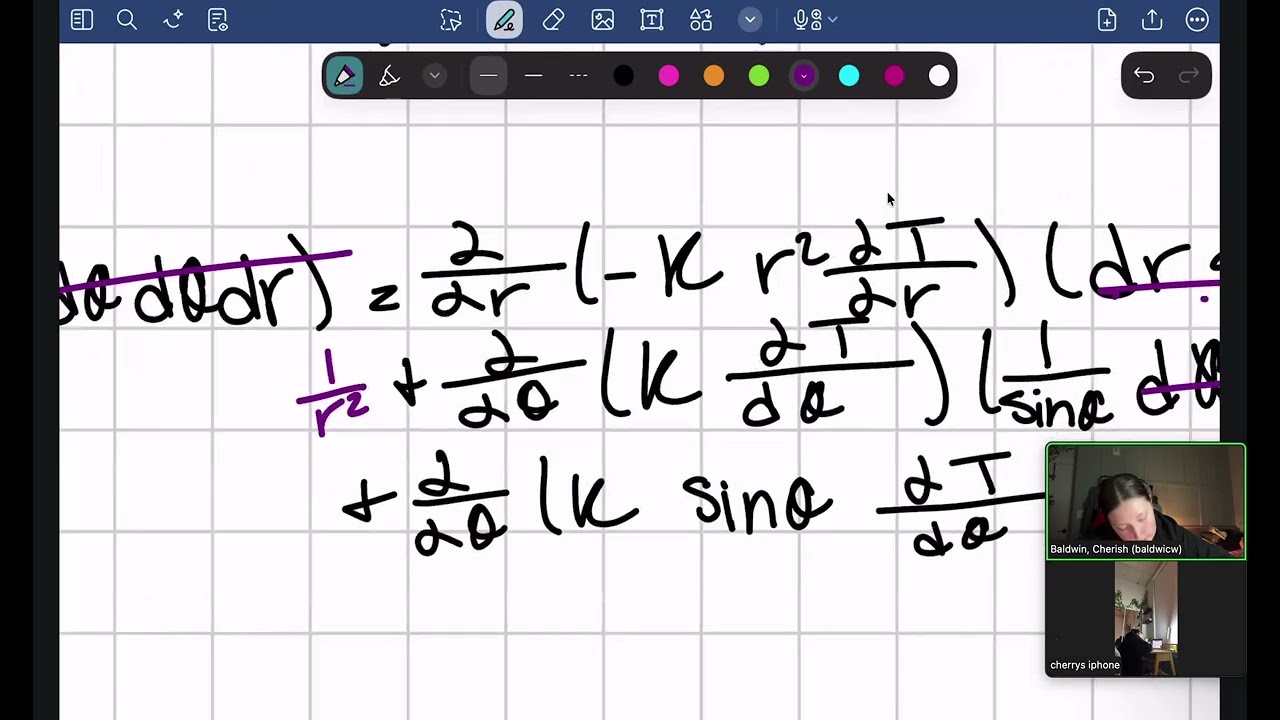 dθ dθ dr) = ∂/∂r (-K r² ∂T/∂r) (dr
1/r² + ∂/∂θ (K ∂T/dθ) (1/sinθ dθ
+ ∂/∂θ (K sinθ ∂T/dθ
Baldwin, Cherish (baldwicw)
cherrys iphone